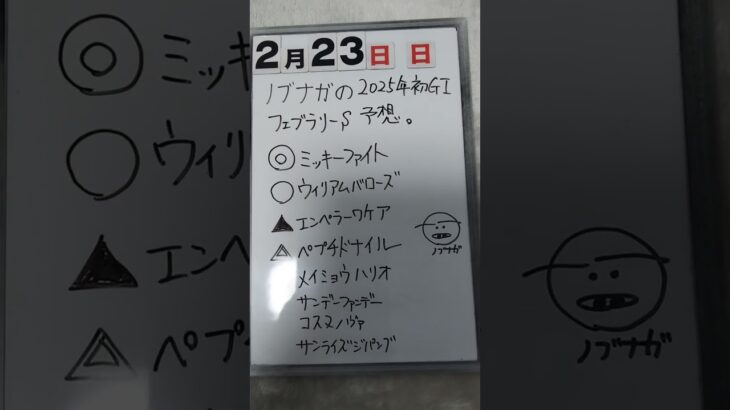 2月23日 日
ノブナガの2025年初GI
フェブラリーS 予想。
◎ミッキーファイト
○ウィリアムバローズ
▲エンペラーワケア
△ペプチドナイル
メイショウハリオ
サンデーファンデー
コスタノヴァ
サンライズジパング
ノブナガ